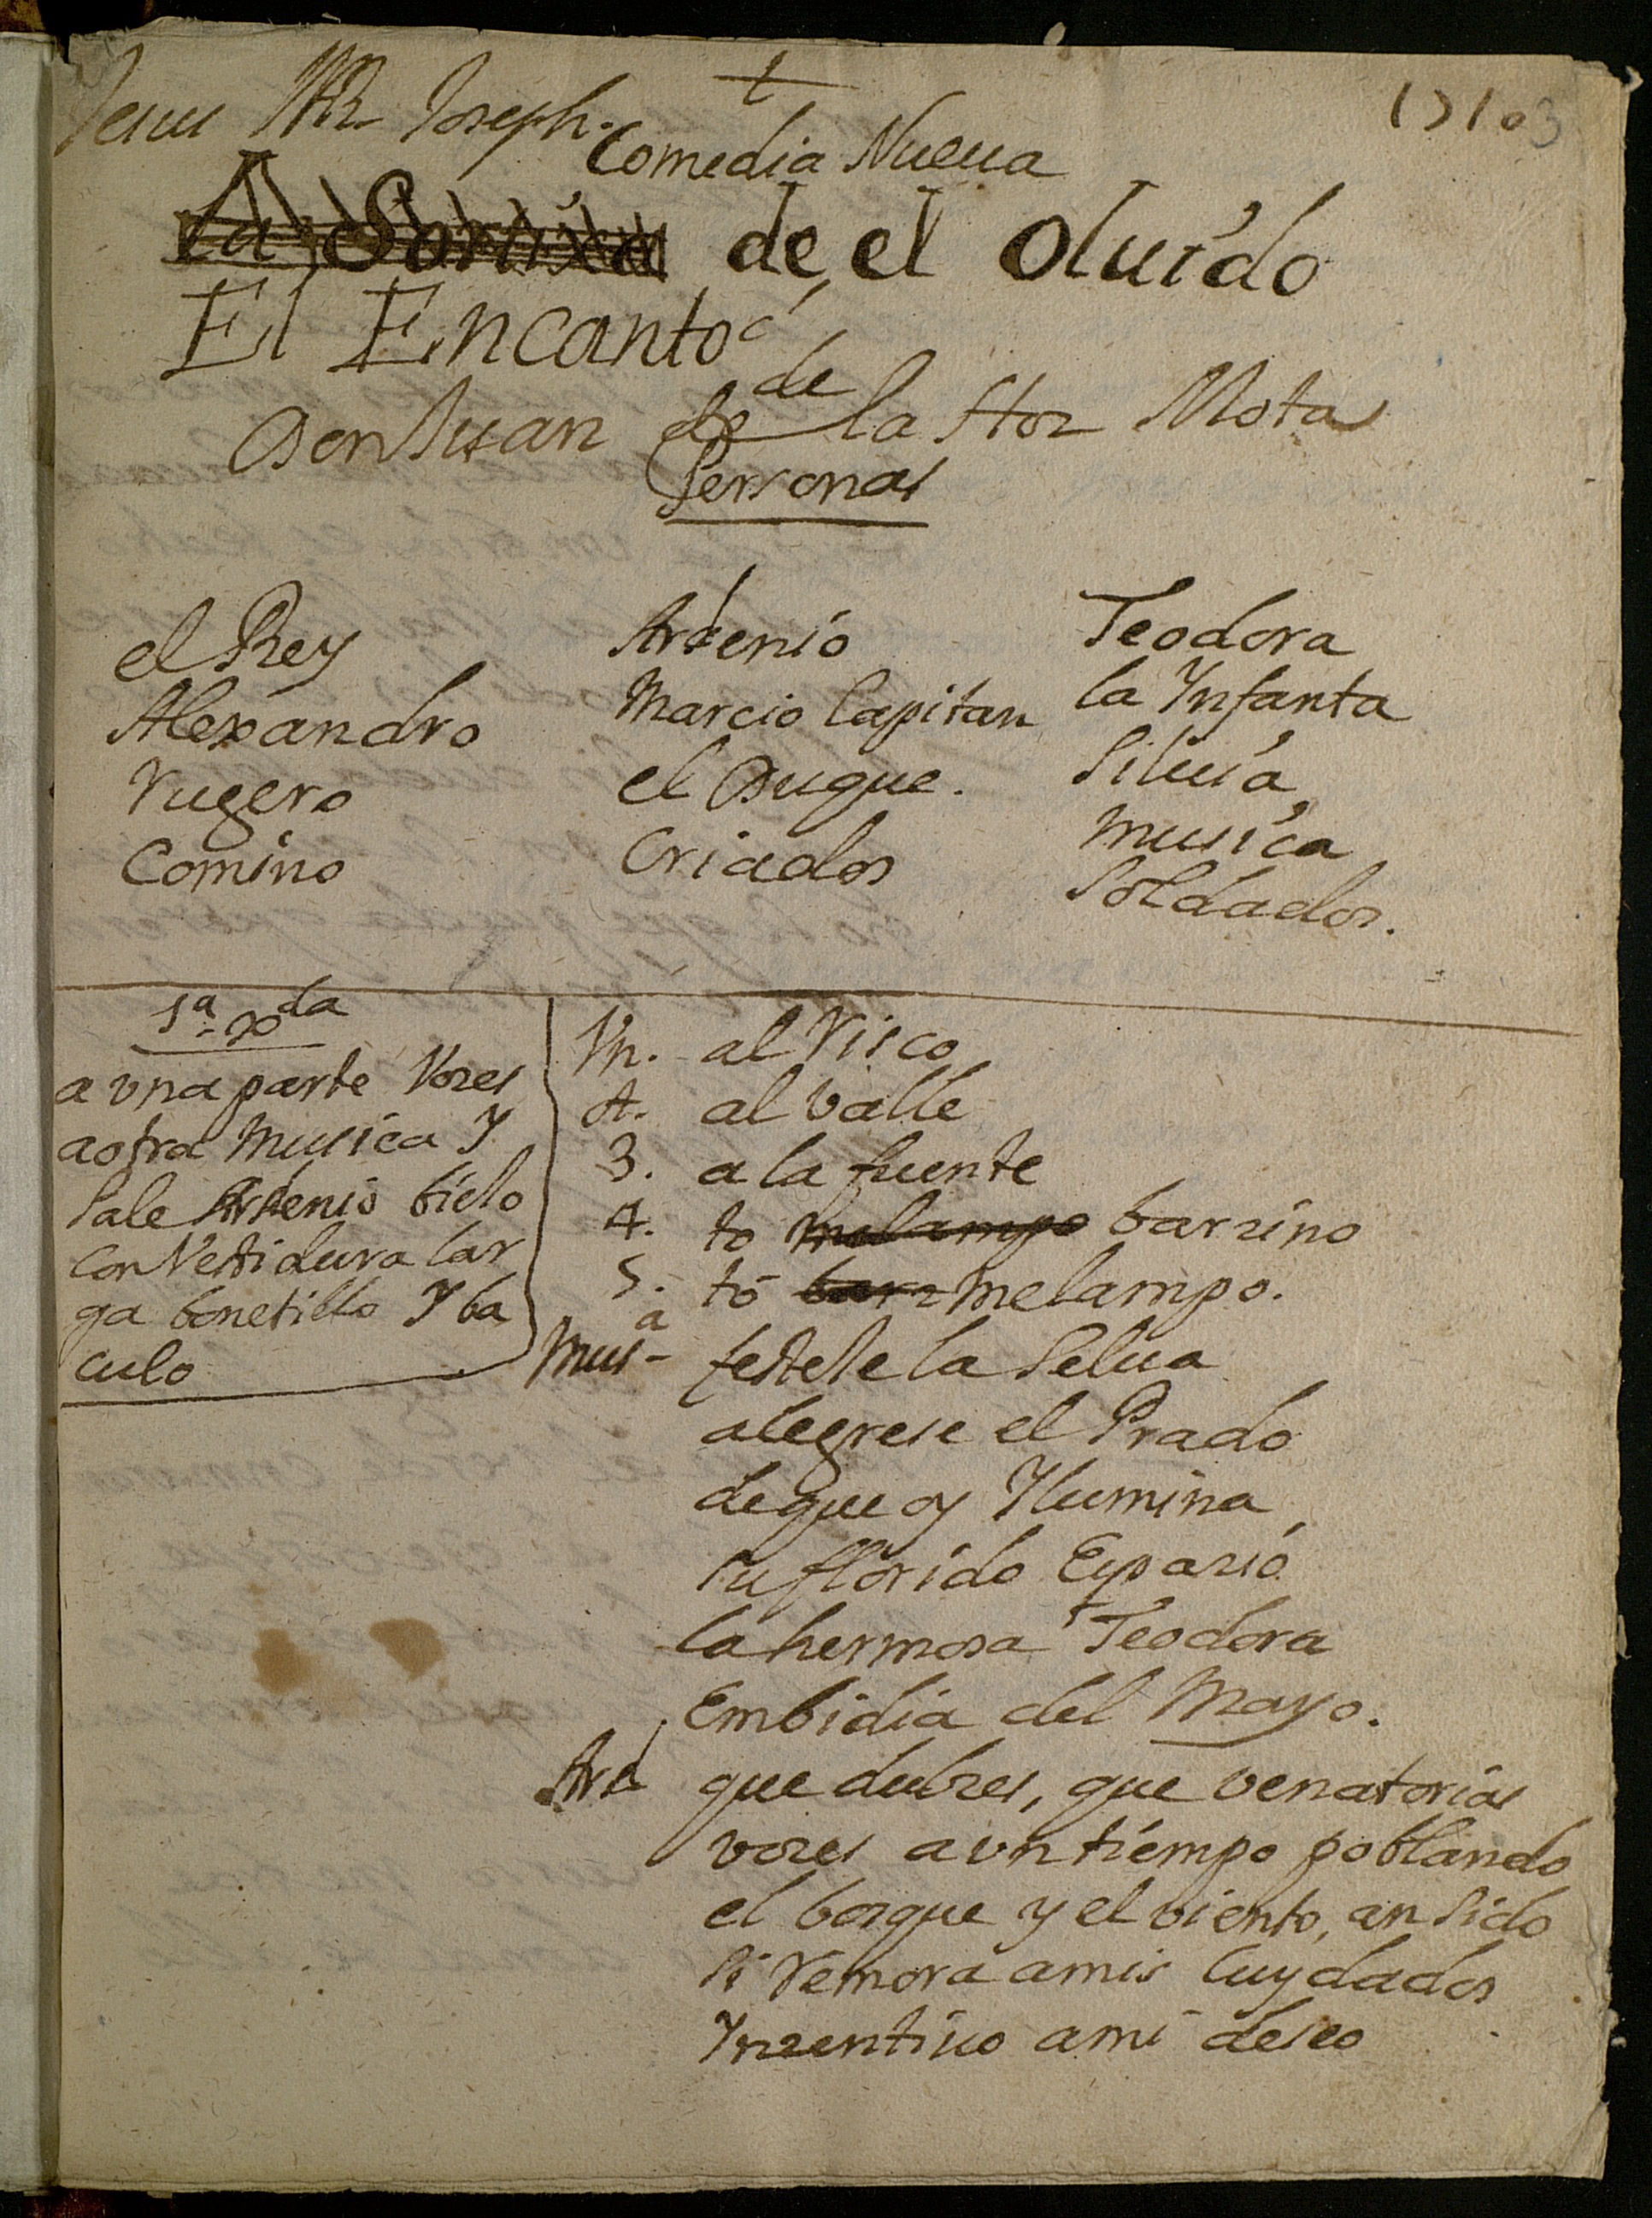 Jesus Mª Joseph. †
Comedia Nueua
La Sortixa de el oluido
El Encanto
Don Juan de de la Hoz Mota
Personas
el Rey
Alexandro
Rugero
Comino
Ardenio
Marcio Capitan
el Duque.
Criados
Teodora
la Ynfanta
Siluia
musica
Soldados.
1ª Xda
a vna parte Vozes
a otra musica Y
Sale Ardenio biejo
con Vestidura lar
ga bonetillo Y ba
culo
Vn. al Risco
2. al Valle
3. a la fuente
4. to melampo barzino
5. to barz melampo.
Musª festeje la Selua
alegrese el Prado
de que oy Ylumina
su florido Espazio
la hermosa Teodora
Embidia del Mayo.
Ard que dulzes, que venatorias
vozes a vn tiempo poblando
el bosque y el viento, an Sido
si Remora a mis Cuydados
Ynzentiuo a mi deseo